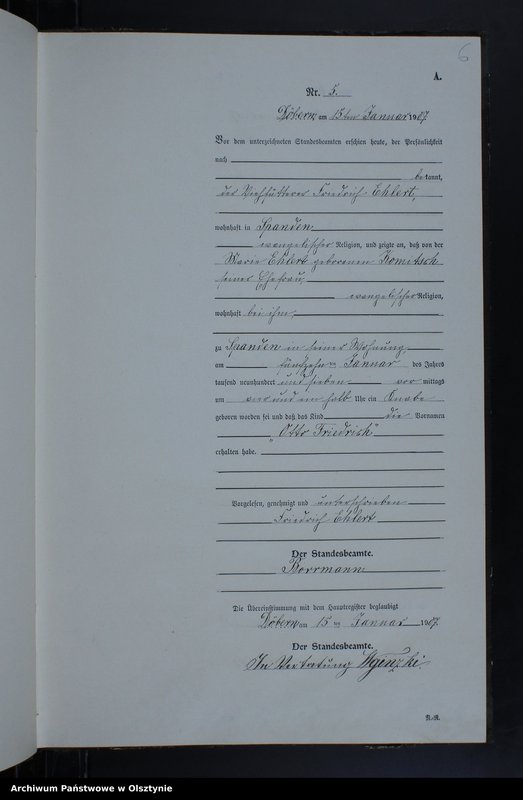 6
A.
Nr. 5.
Döbern am 15ten Januar 1907.
Vor dem unterzeichneten Standesbeamten erschien heute, der Persönlichkeit
nach
bekannt,
der Viehfütterer Friedrich Ehlert,
wohnhaft in Spanden
evangelischer Religion, und zeigte an, daß von der
Marie Ehlert geborenen Komitsch
seiner Ehefrau
evangelischer Religion,
wohnhaft bei ihm,
zu Spanden in seiner Wohnung
am fünfzehn ten Januar des Jahres
tausend neunhundert und sieben vor mittags
um und ein halb Uhr ein Knabe
geboren worden sei und daß das Kind die Vornamen
„Otto Friedrich"
erhalten habe.
Vorgelesen, genehmigt und unterschrieben
Friedrich Ehlert
Der Standesbeamte.
Borrmann
Die Übereinstimmung mit dem Hauptregister beglaubigt
Döbern am 15 ten Januar 1907.
Der Standesbeamte.
In Vertretung
R.-R.
Archiwum Państwowe w Olsztynie